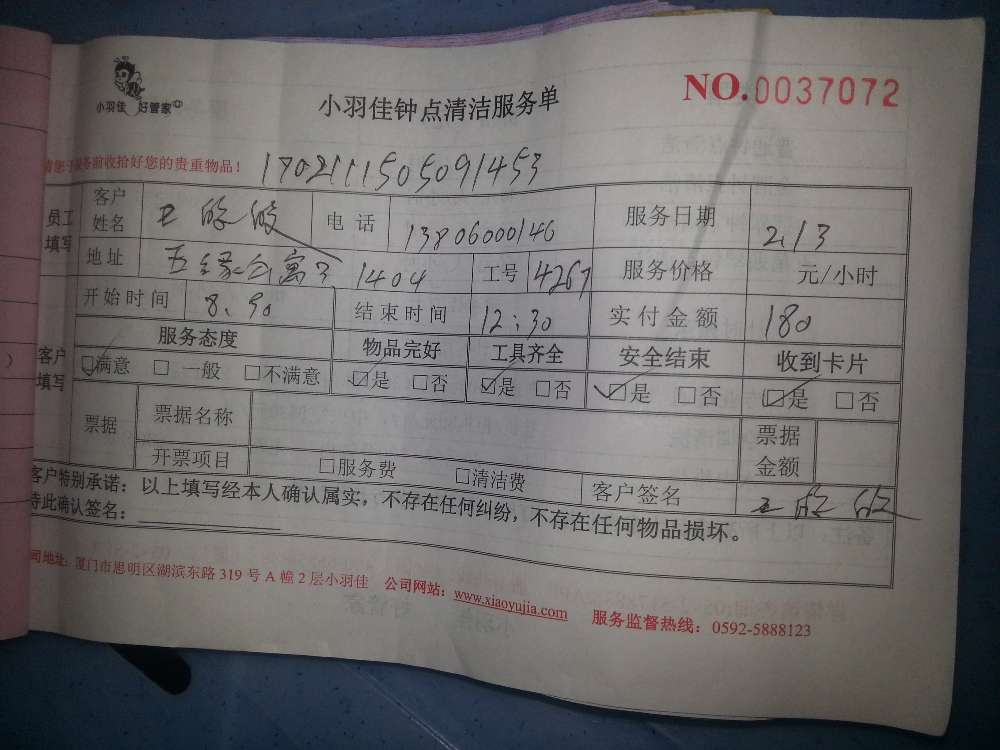 小羽佳 好管家
小羽佳钟点清洁服务单
NO.0037072
务前收拾好您的贵重物品！
1702111505091453
员工填写
客户姓名 王皎皎 电话 13806000146 服务日期 2.13
地址 五缘公寓3 1404 工号 4267 服务价格 元/小时
开始时间 8.30 结束时间 12:30 实付金额 180
客户填写
服务态度 物品完好 工具齐全 安全结束 收到卡片
☑满意 □一般 □不满意 ☑是 □否 ☑是 □否 ☑是 □否 ☑是 □否
票据 票据名称 票据金额
开票项目 □服务费 □清洁费 客户签名 王皎皎
客户特别承诺：以上填写经本人确认属实，不存在任何纠纷，不存在任何物品损坏。
特此确认签名：
司地址：厦门市思明区湖滨东路 319 号 A 幢 2 层小羽佳 公司网站：www.xiaoyujia.com 服务监督热线：0592-5888123